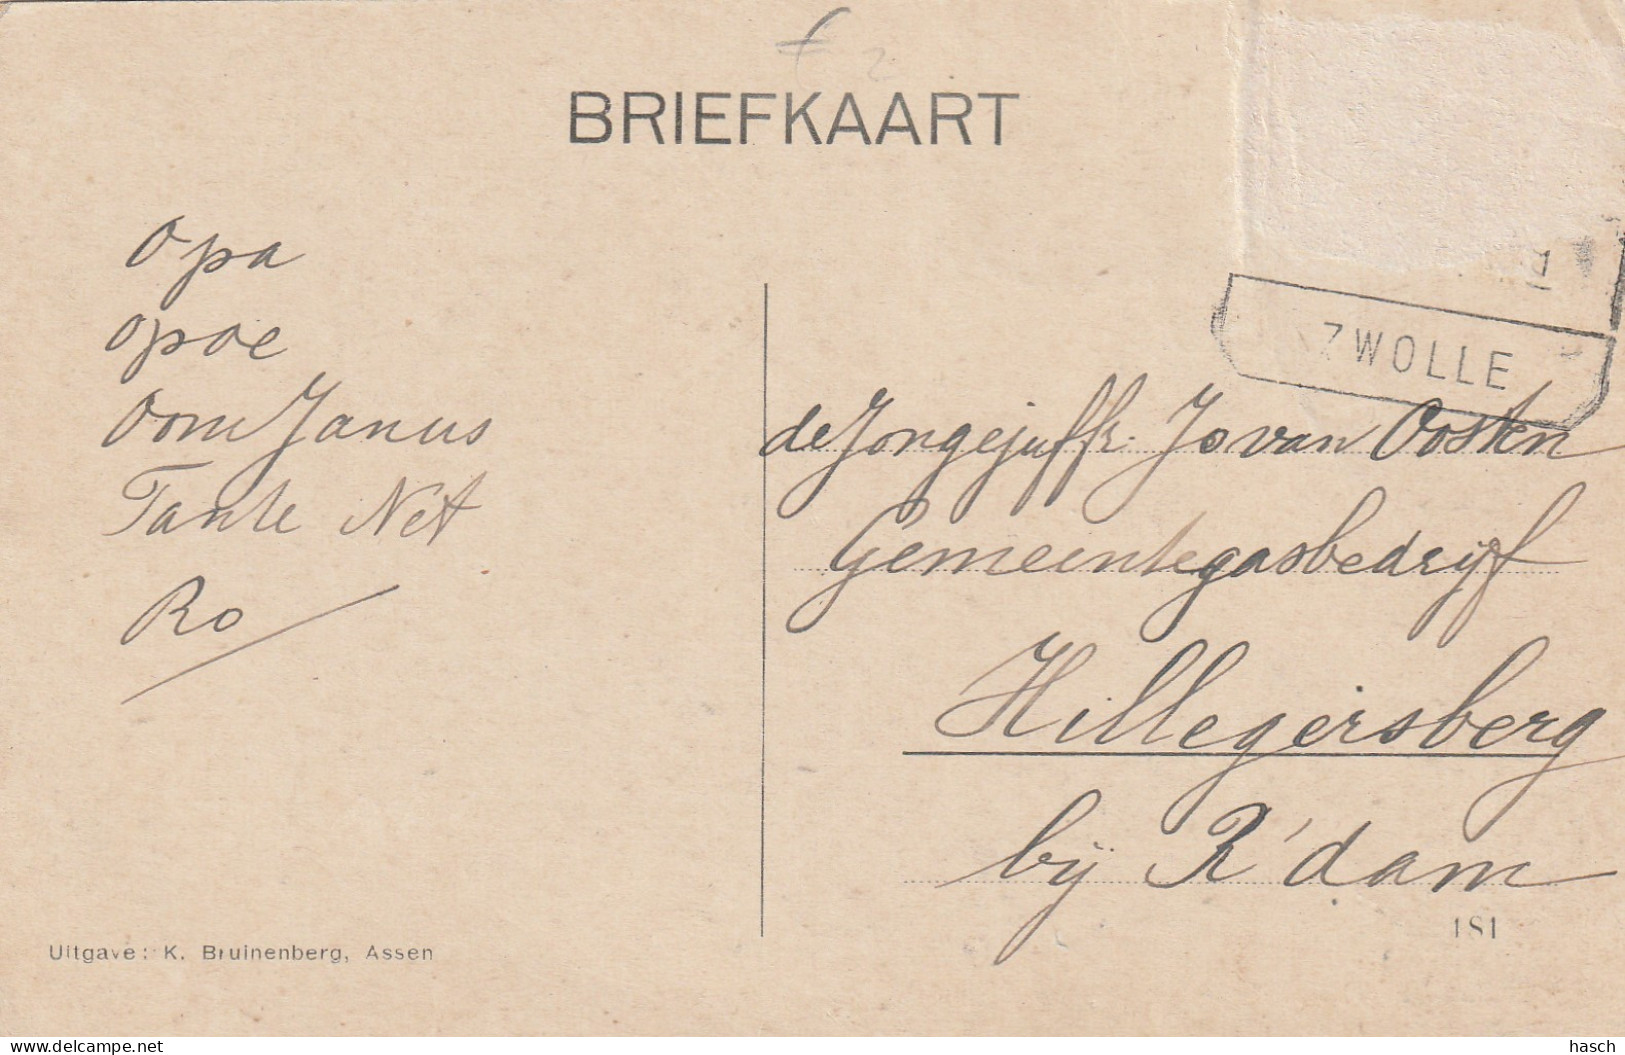 BRIEFKAART
Opa
opoe
Oom Janus
Tante Net
Ro
ZWOLLE
de Jongejuffr: Jo van Oosten
Gemeentegasbedrijf
Hillegersberg
bij R'dam
181
Uitgave: K. Bruinenberg, Assen
delcampe.net
hasch